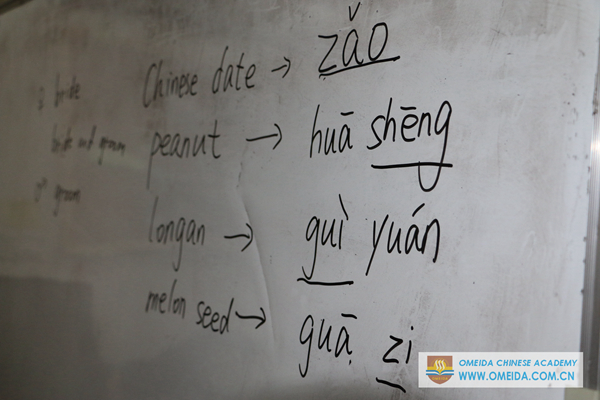 Chinese date → zǎo
peanut → huā shēng
longan → guì yuán
melon seed → guā zi
bride
bride and groom
groom
OMEIDA CHINESE ACADEMY
WWW.OMEIDA.COM.CN